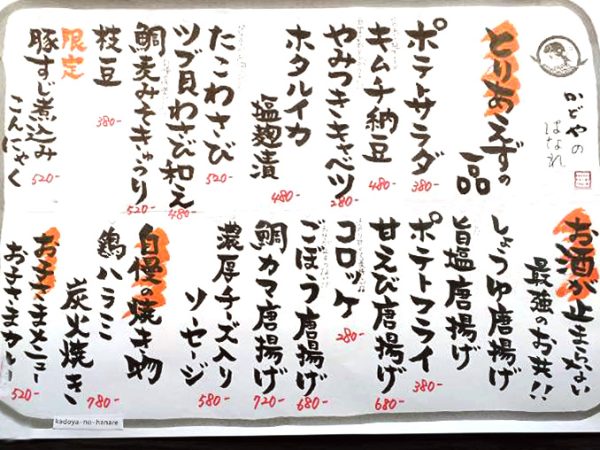 かどやの
はなれ
とりあえずの
一品
ポテトサラダ
380-
キムチ納豆
480-
やみつきキャベツ
280-
ホタルイカ
塩麹漬
480-
たこわさび
520-
ツブ貝わさび和え
480-
鯛麦みそきゅうり
520-
枝豆
380-
限定
豚すじ煮込み
こんにゃく
520-
お酒が止まらない
最強のお共!!
しょうゆ唐揚げ
旨塩唐揚げ
ポテトフライ
380-
甘えび唐揚げ
680-
コロッケ
280-
ごぼう唐揚げ
680-
鯛カマ唐揚げ
720-
濃厚チーズ入り
ソーセージ
580-
自慢の焼き物
鶏ハラミ
炭火焼き
780-
お子さまメニュー
お子さまカレー
520-
kadoya-no-hanare